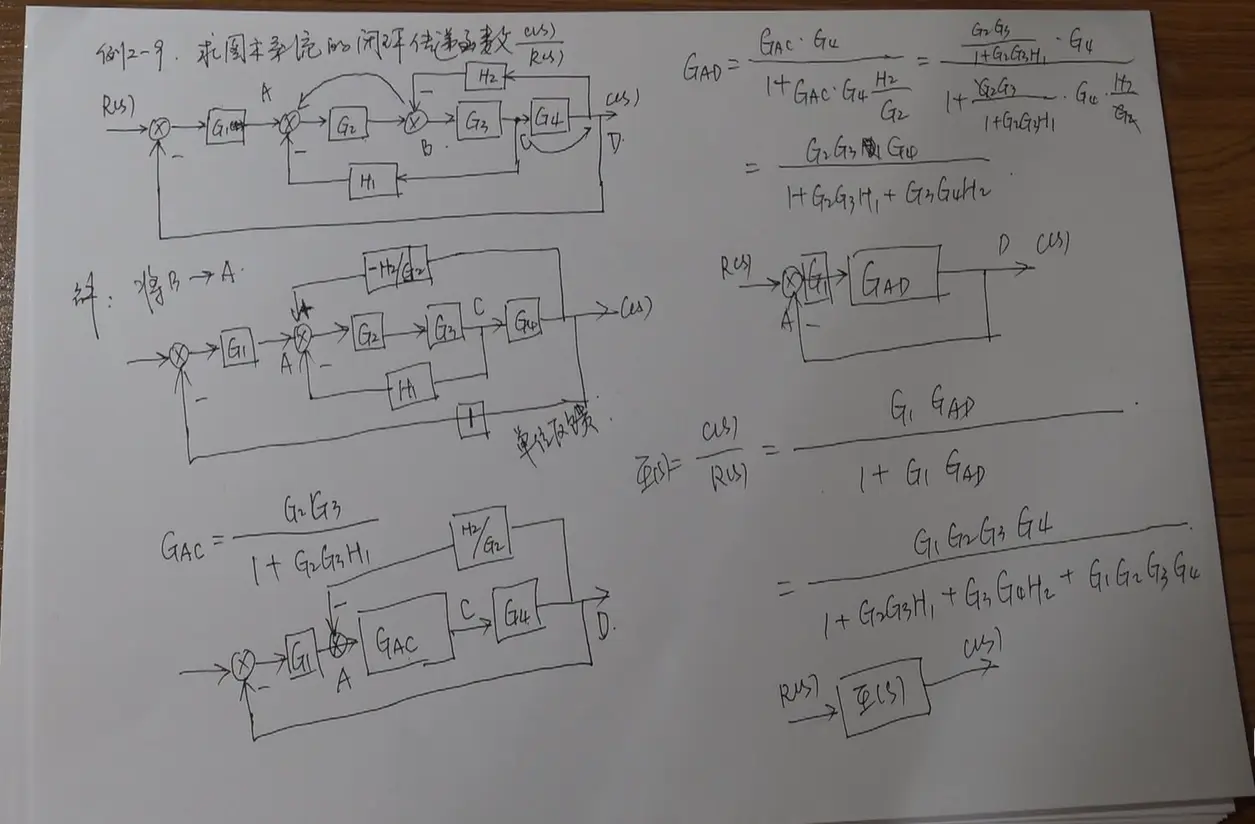 例2-9. 求图示系统的闭环传递函数 C(s)/R(s)
R(s) A H2 C(s)
G1 G2 B. G3 C G4 D.
H1
解: 将B→A.
-H2/G2
G1 A G2 G3 C G4 C(s)
H1
1 单位反馈.
GAC = G2G3 / 1+G2G3H1
H2/G2
G1 A GAC C G4 D.
GAD = GAC·G4 / 1+GAC·G4 H2/G2 = G2G3/1+G2G3H1 ·G4 / 1+ G2G3/1+G2G3H1 ·G4· H2/G2
= G2G3G4 / 1+G2G3H1+G3G4H2
R(s) G1 GAD D C(s)
A
Φ(s)= C(s)/R(s) = G1 GAD / 1+ G1 GAD
= G1G2G3G4 / 1+G2G3H1+G3G4H2+G1G2G3G4
R(s) Φ(s) C(s)